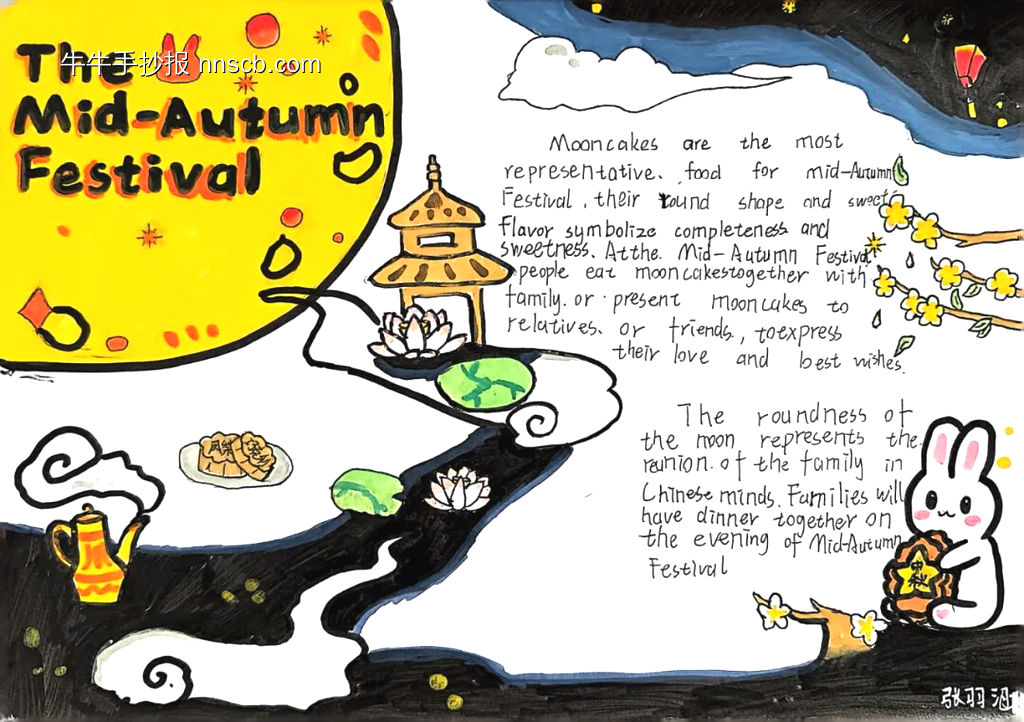 牛牛手抄报 nnscb.com
The
Mid-Autumn
Festival
Mooncakes are the most
representative. food for mid-Autumn
Festival, their round shape and sweet
flavor symbolize completeness and
sweetness. At the Mid-Autumn Festival
people eat mooncakes together with
family. or present mooncakes to
relatives. or friends, to express
their love and best wishes.
The roundness of
the moon represents the
reunion. of the family in
Chinese minds. Families will
have dinner together on
the evening of Mid-Autumn
Festival
中秋
张羽